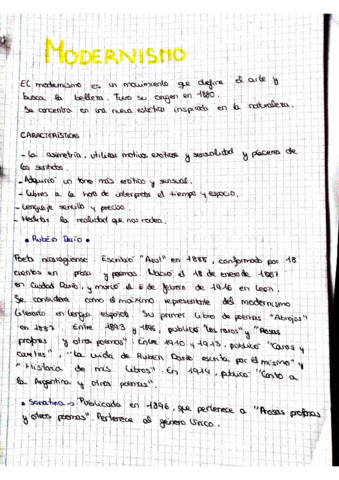 MODERNISMO
El modernismo es un movimiento que define el arte y
busca la belleza. Tuvo su origen en 1880.
Se concentra en una nueva estética inspirada en la naturaleza.
CARACTERÍSTICAS
- La asimetría, utilizar motivos exóticos y sensualidad y placeres de
los sentidos.
- Adquirió un tono más erótico y sensual.
- Libres a la hora de interpretar el tiempo y espacio.
- Lenguaje sencillo y preciso
- Meditar la realidad que nos rodea.
• Rubén Darío •
Poeta nicaragüense. Escribió "Azul" en 1888, conformado por 18
cuentos en prosa y poemas. Nació el 18 de enero de 1867
en Ciudad Darío, y murió el 6 de febrero de 1916 en León.
Se considera como el máximo representante del modernismo
literario en lengua española. Su primer libro de poemas "Abrojos"
en 1887. Entre 1893 y 1896, publicó "los raros" y "Prosas
profanas y otros poemas". Entre 1910 y 1913, publicó "Caras y
caretas", "La vida de Rubén Darío escrita por él mismo" y
"Historia de mis libros". En 1914, publicó "Canto a
la Argentina y otros poemas".
• Sonatina → Publicada en 1896, que pertenece a "Prosas profanas
y otros poemas". Pertenece al género lírico.